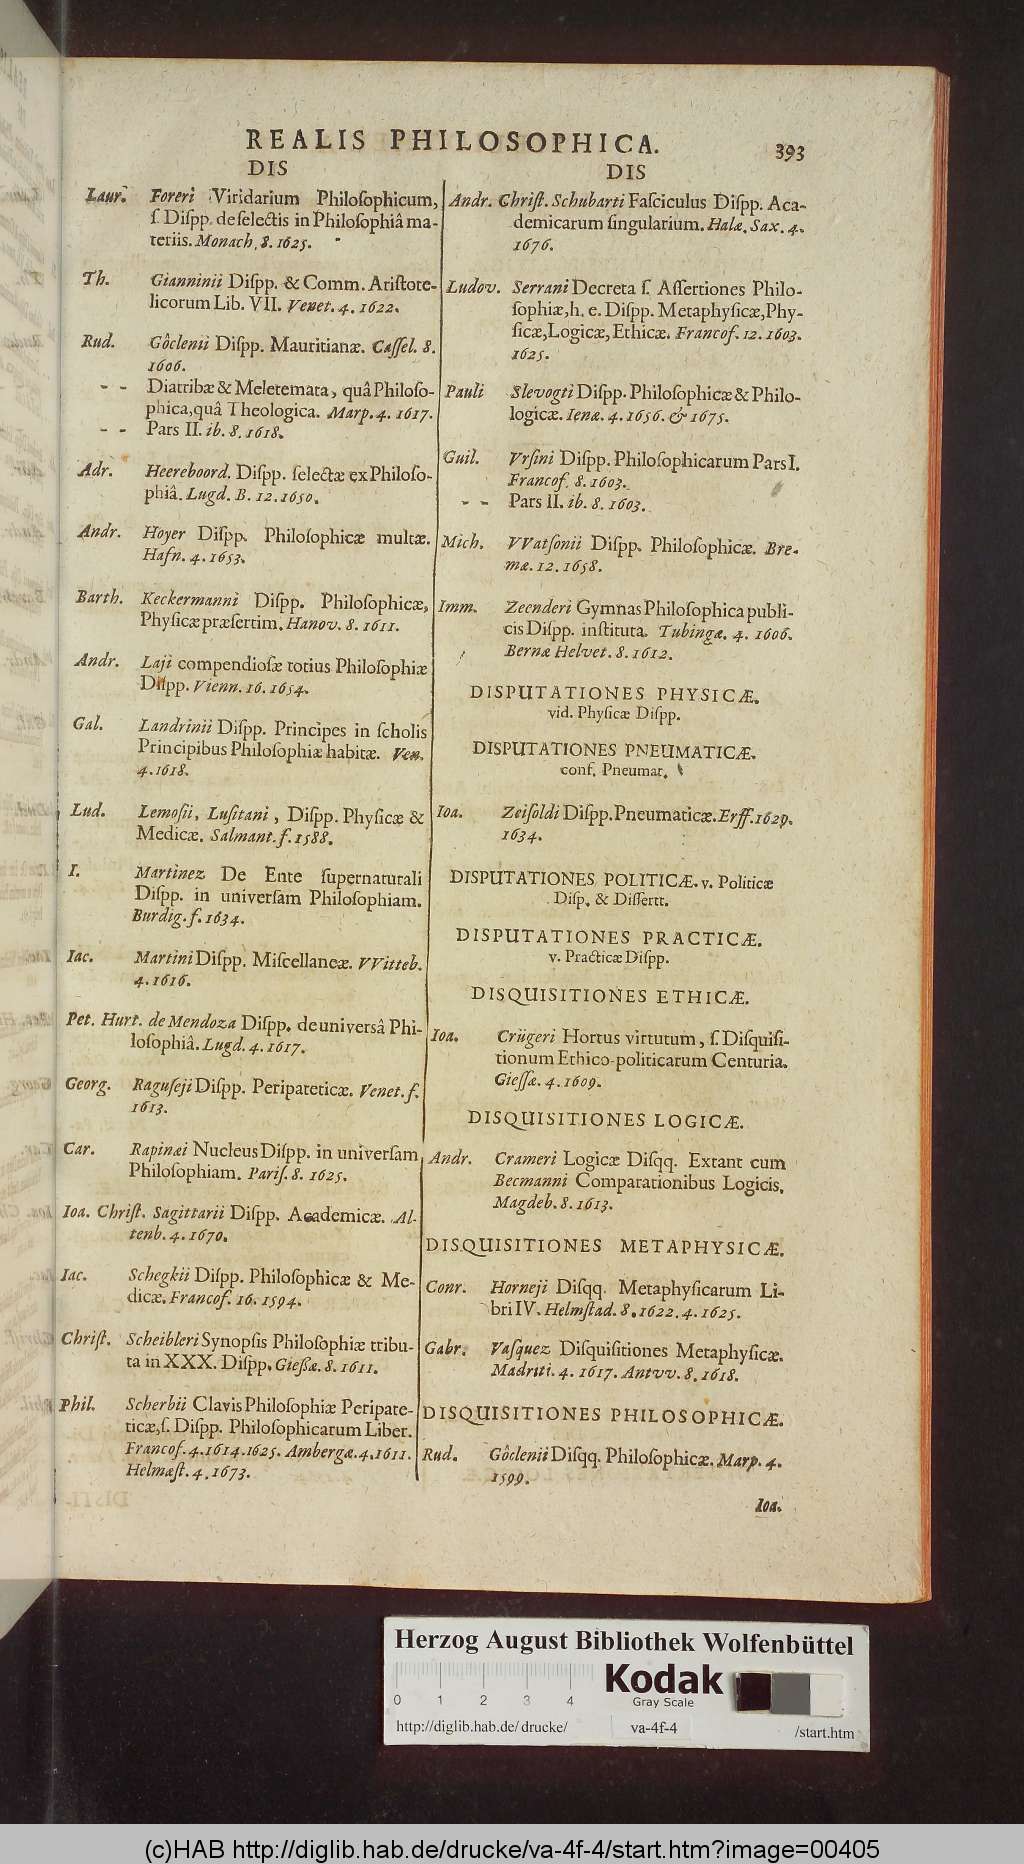 REALIS PHILOSOPHICA.
393
DIS
Laur. Foreri Viridarium Philoſophicum,
ſ. Diſpp. de ſelectis in Philoſophiâ ma-
teriis. Monach. 8. 1625.
Th. Gianninii Diſpp. & Comm. Ariſtote-
licorum Lib. VII. Venet. 4. 1622.
Rud. Gôclenii Diſpp. Mauritianæ. Caſſel. 8.
1606.
- - Diatribæ & Meletemata, quâ Philoſo-
phica, quâ Theologica. Marp. 4. 1617.
- - Pars II. ib. 8. 1618.
Adr. Heereboord. Diſpp. ſelectæ ex Philoſo-
phiâ. Lugd. B. 12. 1650.
Andr. Hoyer Diſpp. Philoſophicæ multæ.
Hafn. 4. 1653.
Barth. Keckermanni Diſpp. Philoſophicæ,
Phyſicæ præſertim. Hanov. 8. 1611.
Andr. Laji compendioſæ totius Philoſophiæ
Diſpp. Vienn. 16. 1654.
Gal. Landrinii Diſpp. Principes in ſcholis
Principibus Philoſophiæ habitæ. Ven.
4. 1618.
Lud. Lemoſii, Luſitani, Diſpp. Phyſicæ &
Medicæ. Salmant. f. 1588.
I. Martinez De Ente ſupernaturali
Diſpp. in univerſam Philoſophiam.
Burdig. f. 1634.
Iac. Martini Diſpp. Miſcellaneæ. VVitteb.
4. 1616.
Pet. Hurt. de Mendoza Diſpp. de universâ Phi-
loſophiâ. Lugd. 4. 1617.
Georg. Raguſeji Diſpp. Peripateticæ. Venet. f.
1613.
Car. Rapinæi Nucleus Diſpp. in univerſam
Philoſophiam. Pariſ. 8. 1625.
Ioa. Chriſt. Sagittarii Diſpp. Academicæ. Al-
tenb. 4. 1670.
Iac. Schegkii Diſpp. Philoſophicæ & Me-
dicæ. Francof. 16. 1594.
Chriſt. Scheibleri Synopſis Philoſophiæ tribu-
ta in XXX. Diſpp. Gießæ. 8. 1611.
Phil. Scherbii Clavis Philoſophiæ Peripate-
ticæ, ſ. Diſpp. Philoſophicarum Liber.
Francof. 4. 1614. 1625. Ambergæ. 4. 1611.
Helmæſt. 4. 1673.
DIS
Andr. Chriſt. Schubarti Faſciculus Diſpp. Aca-
demicarum ſingularium. Halæ. Sax. 4.
1676.
Ludov. Serrani Decreta ſ. Aſſertiones Philo-
ſophiæ, h. e. Diſpp. Metaphyſicæ, Phy-
ſicæ, Logicæ, Ethicæ. Francof. 12. 1603.
1625.
Pauli Slevogti Diſpp. Philoſophicæ & Philo-
logicæ. Ienæ. 4. 1656. & 1675.
Guil. Vrſini Diſpp. Philoſophicarum Pars I.
Francof. 8. 1603.
- - Pars II. ib. 8. 1603.
Mich. VVatſonii Diſpp. Philoſophicæ. Bre-
mæ. 12. 1658.
Imm. Zeenderi Gymnas Philoſophica publi-
cis Diſpp. inſtituta. Tubingæ. 4. 1606.
Bernæ Helvet. 8. 1612.
DISPUTATIONES PHYSICÆ.
vid. Phyſicæ Diſpp.
DISPUTATIONES PNEUMATICÆ.
conf. Pneumat.
Ioa. Zeiſoldi Diſpp. Pneumaticæ. Erff. 1629.
1634.
DISPUTATIONES POLITICÆ. v. Politicæ
Diſp. & Diſſertt.
DISPUTATIONES PRACTICÆ.
v. Practicæ Diſpp.
DISQUISITIONES ETHICÆ.
Ioa. Crügeri Hortus virtutum, ſ. Diſquiſi-
tionum Ethico-politicarum Centuria.
Gieſſæ. 4. 1609.
DISQUISITIONES LOGICÆ.
Andr. Crameri Logicæ Diſqq. Extant cum
Becmanni Comparationibus Logicis.
Magdeb. 8. 1613.
DISQUISITIONES METAPHYSICÆ.
Conr. Horneji Diſqq. Metaphyſicarum Li-
bri IV. Helmſtad. 8. 1622. 4. 1625.
Gabr. Vaſquez Diſquiſitiones Metaphyſicæ.
Madriti. 4. 1617. Antvv. 8. 1618.
DISQUISITIONES PHILOSOPHICÆ.
Rud. Gôclenii Diſqq. Philoſophicæ. Marp. 4.
1599.
Ioa.
Herzog August Bibliothek Wolfenbüttel
0 1 2 3 4
Kodak
Gray Scale
http://diglib.hab.de/ drucke/ va-4f-4 /start.htm
(c)HAB http://diglib.hab.de/drucke/va-4f-4/start.htm?image=00405